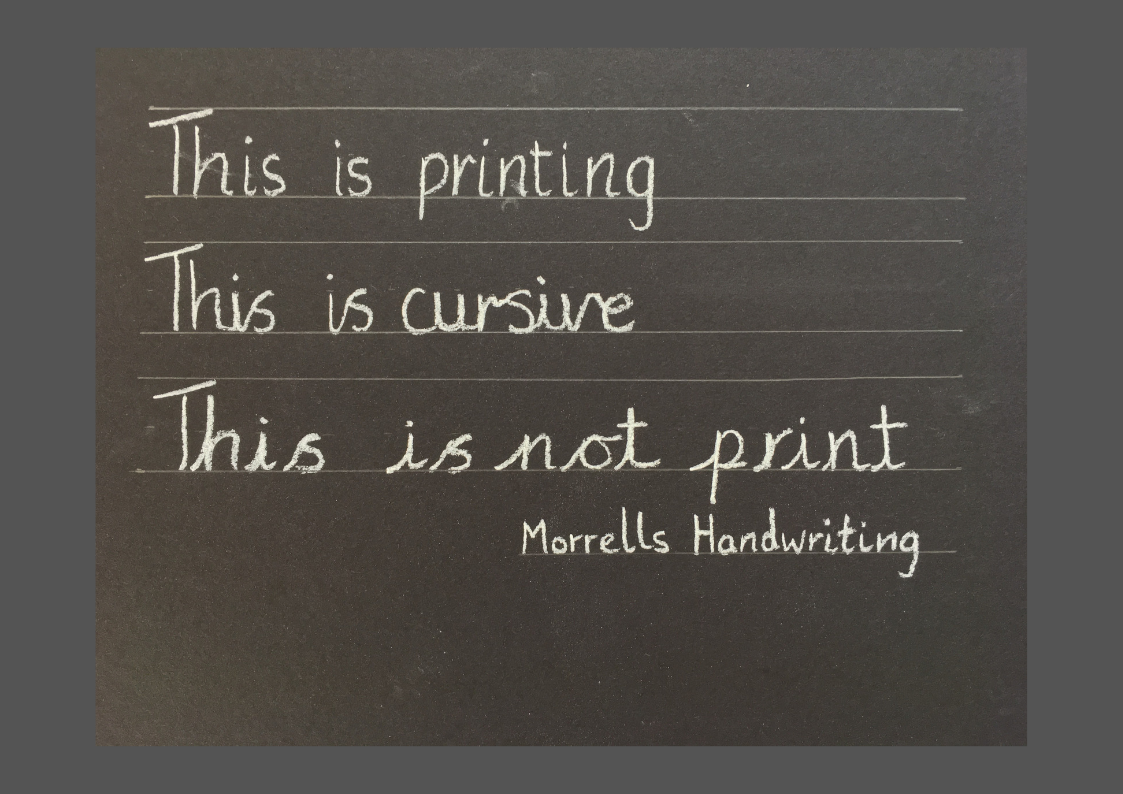 This is printing
This is cursive
This is not print
Morrells Handwriting